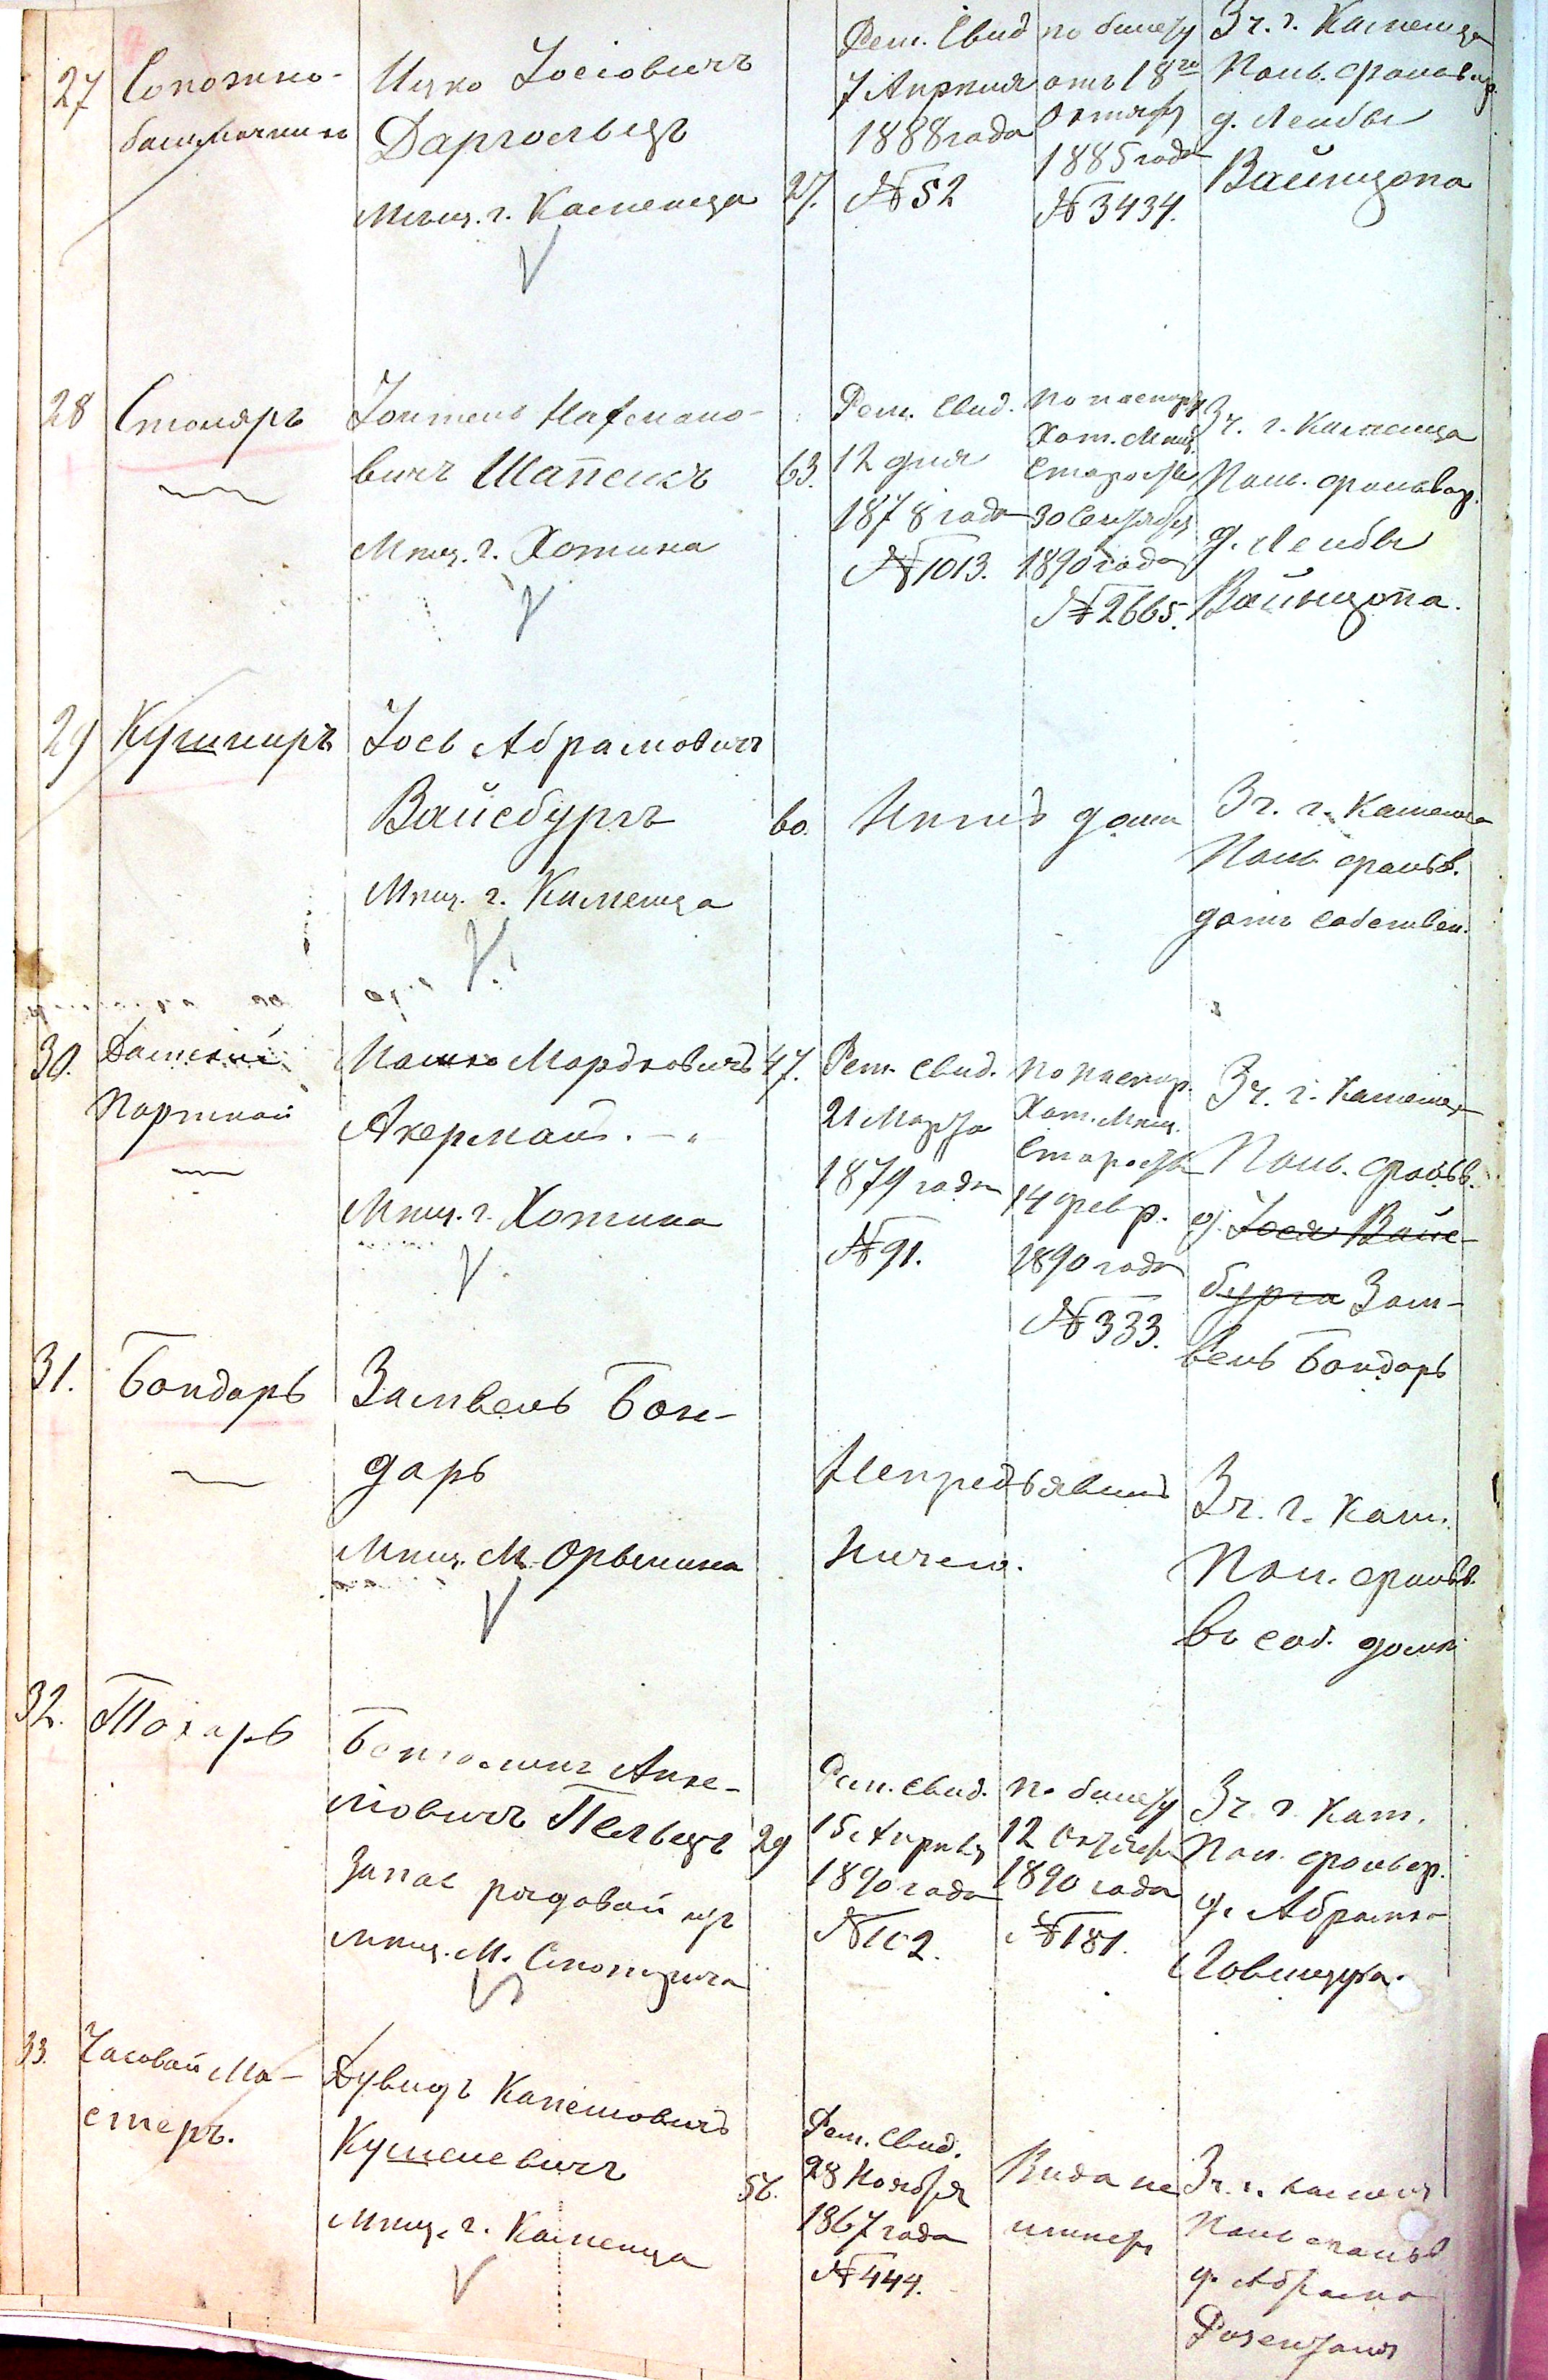 27
Сапожно-
башмачникъ
Ицко Іосіовичъ
Даргольцъ
Мѣщ. г. Каменца
27.
Рем. Свид
7 Апрѣля
1888 года
№ 52
по билету
отъ 18го
Октяб.
1885 года
№ 3434.
3 ч. г. Каменца
Поль. фольвар.
д. Лейбы
Вайнцопа
28
Столяръ
Іонтель Нафмано-
вичъ Шапсикъ
Мѣщ. г. Хотина
63.
Рем. Свид.
12 дня
1878 года
№ 1013.
по паспорт.
Хот. Мѣщ.
Старосты
30 Сентября
1890 года
№ 2665.
3 ч. г. Каменца
Поль. фольвар.
д. Лейбы
Вайнцопа.
29
Кушниръ
Іось Абрамовичъ
Вайсбургъ
Мѣщ. г. Каменца
60.
Нѣтъ дома
3 ч. г. Каменца
Поль. фольв.
домъ собствен.
30.
Дамскій
Портной
Мошко Мордковичъ
Акерманъ.
Мѣщ. г. Хотина
47.
Рем. Свид.
21 Марта
1879 года
№ 91.
по паспор.
Хот. Мѣщ.
Старосты
14 февр.
1890 года
№ 333.
3 ч. г. Каменца
Поль. фольв.
д. Іося Вайс-
бурга Зам-
вель Бондарь
31.
Бондарь
Замвель Бон-
дарь
Мѣщ. М. Орынина
Непредъявилъ
ничего.
3 ч. г. Кам.
Пол. фольв.
въ соб. домѣ
32.
Токарь
Пельцъ
Запас рядовой изъ
мѣщ. М. Смотрича
29
Рем. Свид.
15 Апрѣля
1890 года
№ 102.
По билету
12 Октября
1890 года
№ 181.
3 ч. г. Кам.
Пол. фольвар.
д. Абрама
33.
Часовой Ма-
стеръ.
Дувидъ
Кушелевичъ
Мѣщ. г. Каменца
56.
Рем. Свид.
28 Ноября
1867 года
№ 444.
Вида не
имѣетъ
3 ч. г. Каменца
Поль. фольв
д. Абрама